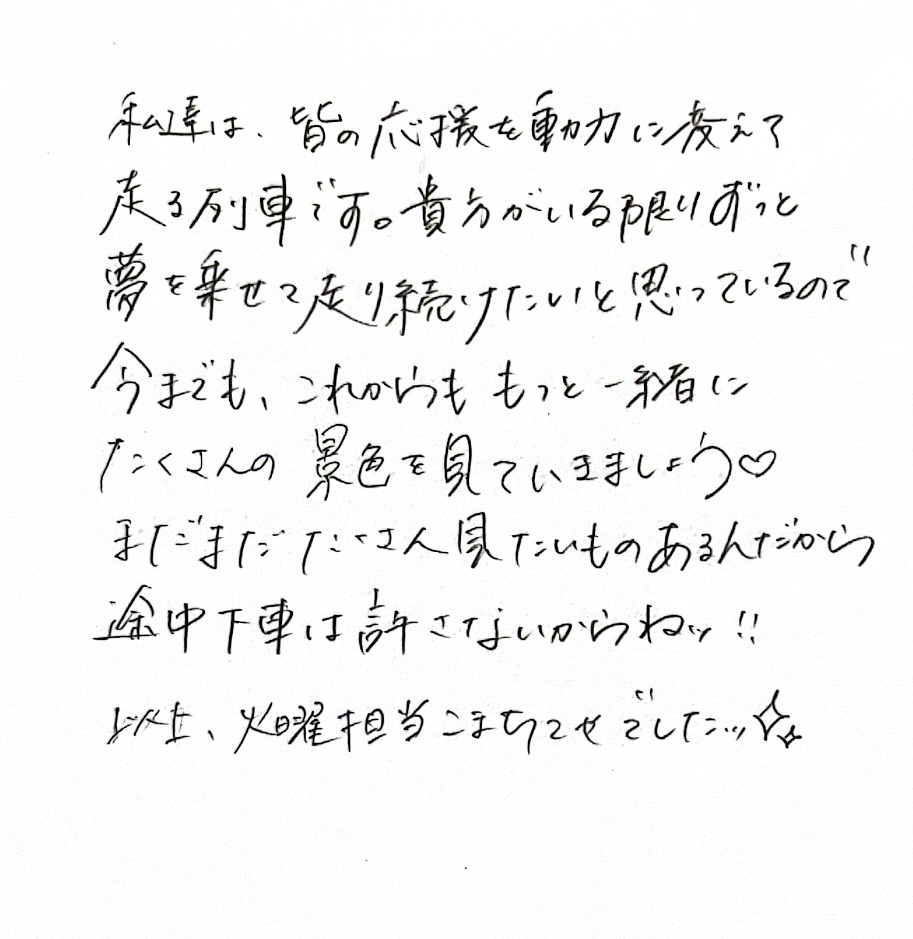 私達は、皆の応援を動力に変えて
走る列車です。貴方がいる限りずっと
夢を乗せて走り続けたいと思っているので
今までも、これからももっと一緒に
たくさんの景色を見ていきましょう♡
まだまだたくさん見たいものあるんだから
途中下車は許さないからねッ!!
以上、火曜担当こまちてせでしたッ✨